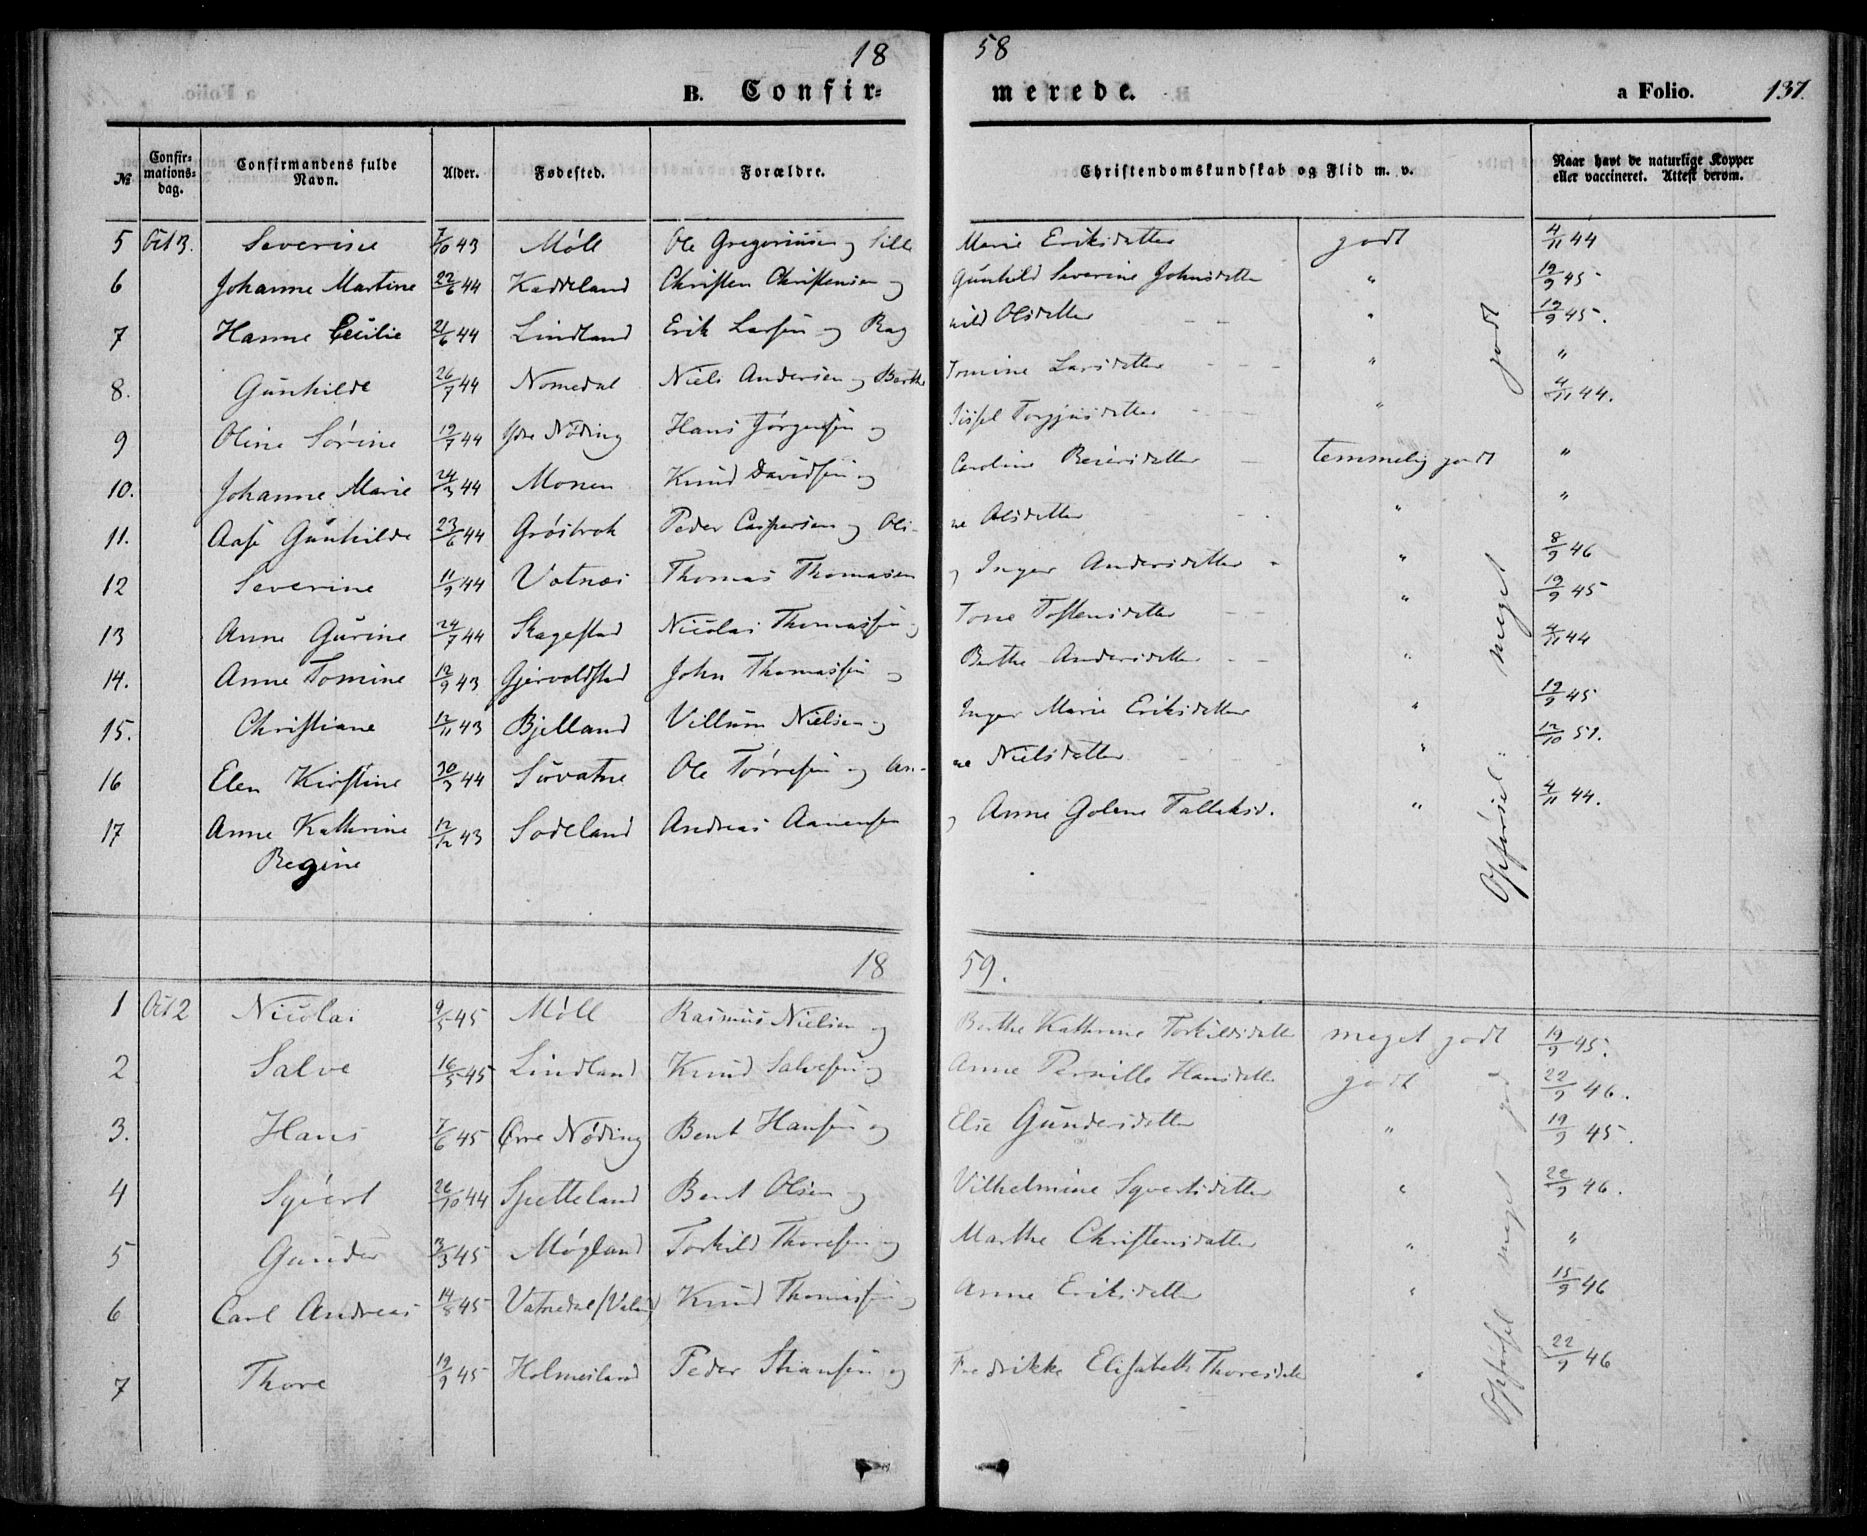 18 58
B. Confirmerede. a Folio. 137.
№ Confirmationsdag. Confirmandens fulde Navn. Alder. Fødested. Forældre. Christendomskundskab og Flid m. v. Naar havt de naturlige Kopper eller vaccineret. Attest derom.
5 Oct 3. Severine 7/10 43 Møll Ole Gregoriusen og Sille Marie Eriksdatter godt 4/11 44
6 Johanne Martine 22/6 44 Kaddeland Christen Christensen og Gunhild Severine Johnsdatter " 19/9 45
7 Hanne Cecilie 21/6 44 Lindland Erik Larsen og Rag hild Olsdatter " 19/9 45.
8. Gunhilde 26/7 44 Nomedal Niels Andersen og Berthe Tomine Larsdatter " "
9 Oline Sørine 19/7 44 Ydre Nøding Hans Jørgensen og Sissel Torgjusdatter " 4/11 44.
10. Johanne Marie 24/3 44 Monen Knud Davidsen og Caroline Beiersdatter temmelig godt "
11. Aase Gunhilde 23/6 44 Grøsbrok Peder Caspersen og Oli- ne Olsdatter " "
12 Severine 11/9 44 Votnæs Thomas Thomasen og Inger Andersdatter " 8/9 46
13 Anne Gurine 24/7 44 Skagestad Nicolai Thomassen og Tone Tostensdatter " 19/9 45
14. Anne Tomine 12/9 43 Gjervoldstad John Thomassen og Berthe Andersdatter " 4/11 44
15. Christiane 12/11 43 Bjelland Villum Nielsen og Inger Marie Eriksdatter " 19/9 45
16 Elen Kirstine 30/3 44 Sørvatne Ole Tørresen og An- ne Nielsdatter " 12/10 51.
17 Anne Kathrine 12/12 43 Sodeland Andreas Aanensen og Anne Golene Tallaksd. " 4/11 44.
Regine
Opførsel: meget godt
18 59.
1 Oct 2 Nicolai 9/5 45 Møll Rasmus Nielsen og Berthe Kathrine Torkildsdatter meget godt 19/9 45.
2 Salve 16/5 45 Lindland Knud Salvesen og Anne Pernille Hansdatter godt 22/9 46.
3. Hans 7/6 45 Øvre Nøding Bent Hansen og Else Gundersdatter " 19/9 45.
4 Syvert 26/10 44 Spetteland Bent Olsen og Vilhelmine Syvertsdatter " 22/9 46.
5 Gunder 3/3 45 Møgland Torkild Thoresen og Marthe Christensdatter " "
6 Carl Andreas 14/8 45 Vatnedal Knud Thomassen og Anne Eriksdatter " 15/9 46
7 Thore 19/9 45 Holmesland Peder Stiansen og Fredrikke Elisabeth Thoresdatt " 22/9 46
Opførsel meget god